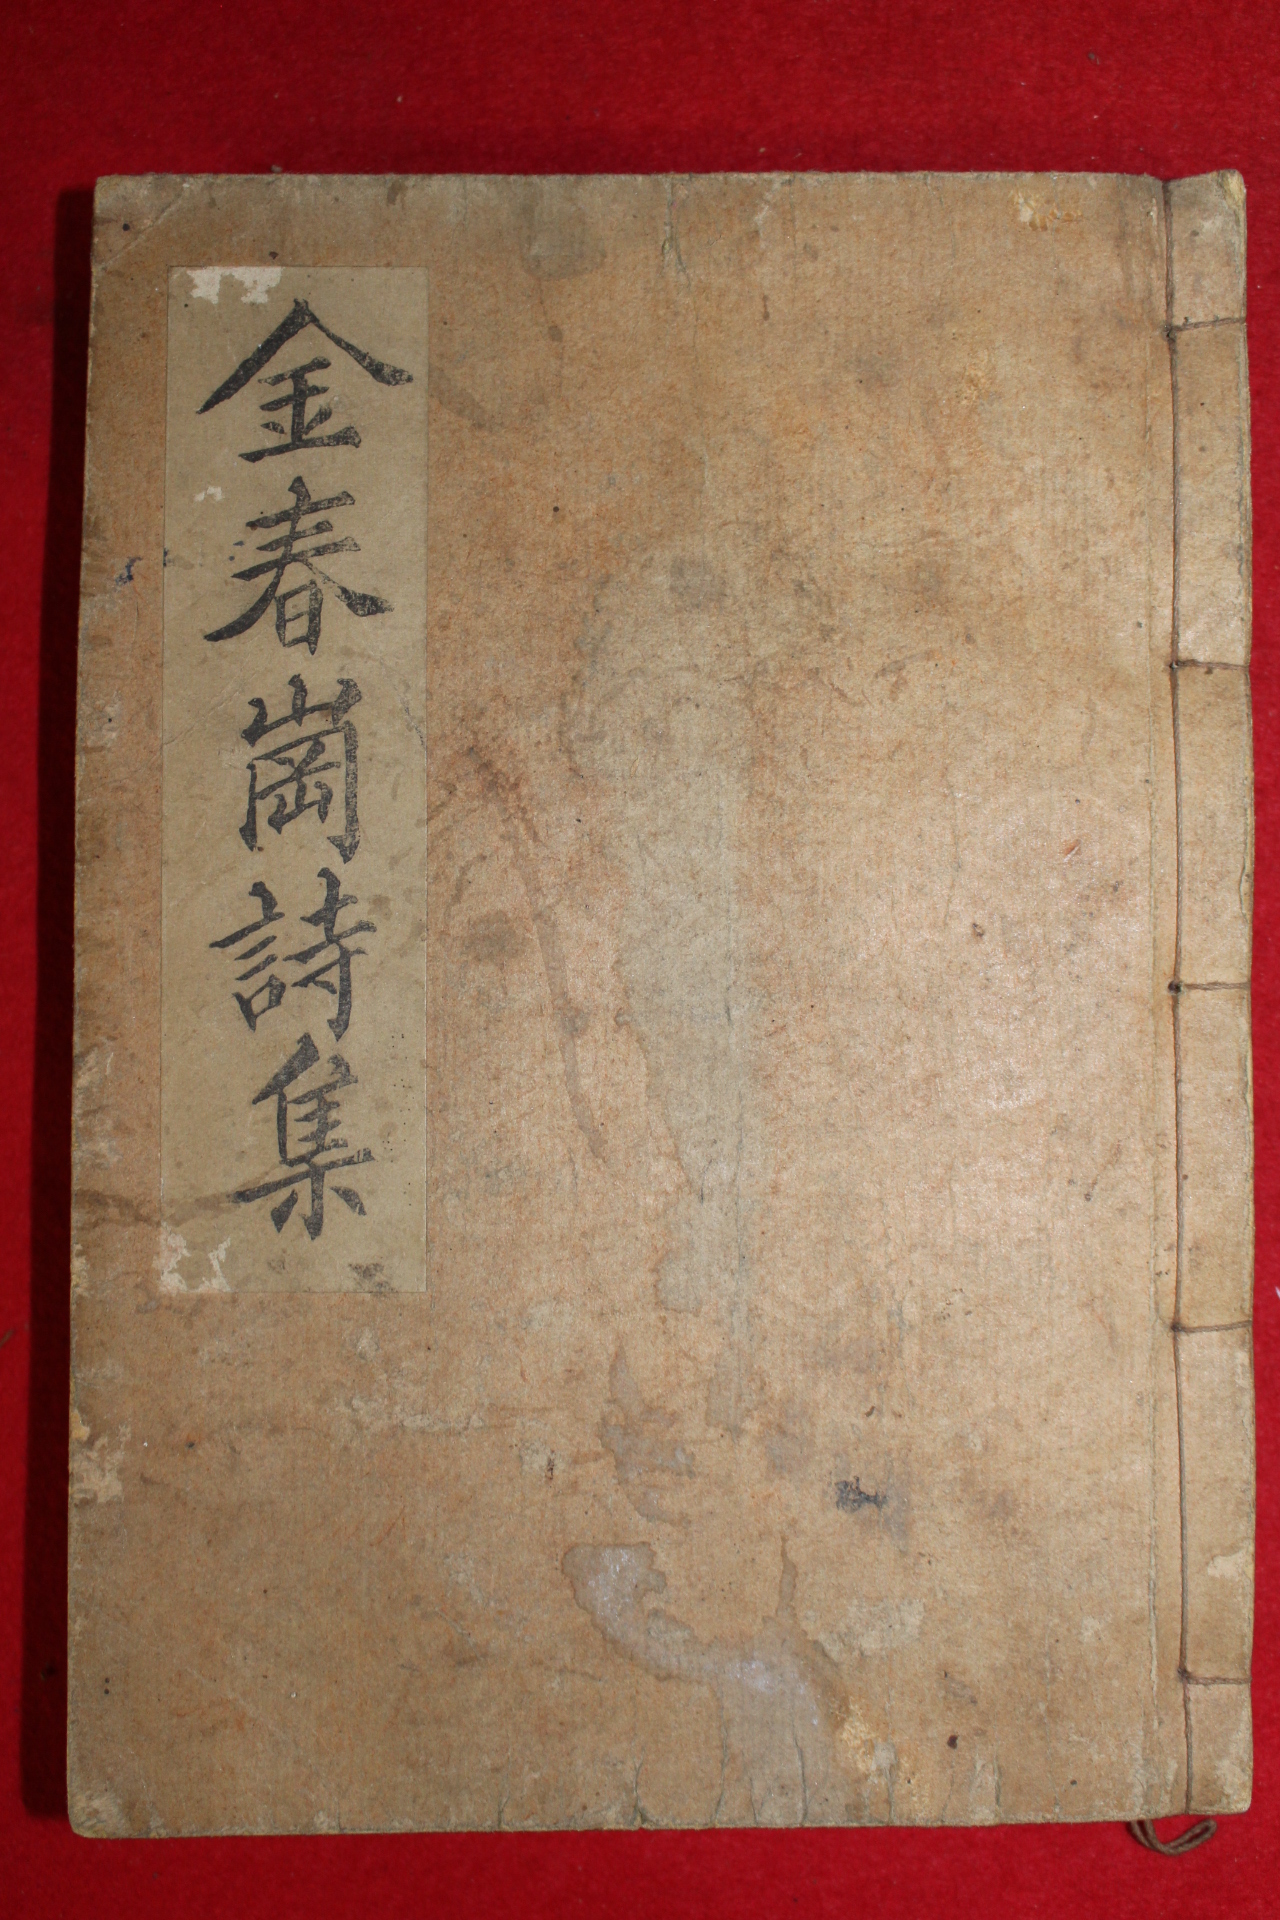 金春崗詩集